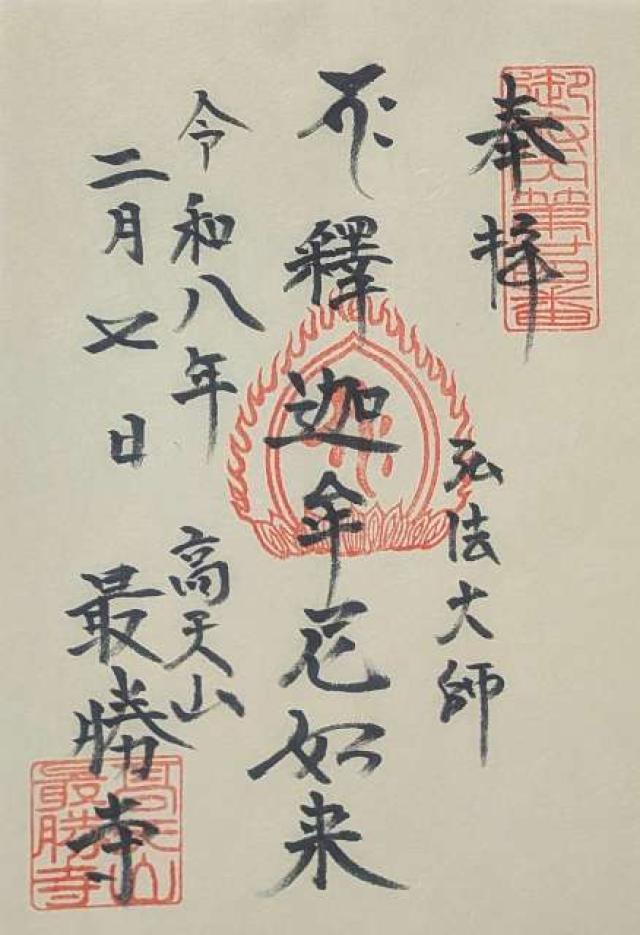 奉拝
弘法大師
釋迦牟尼如来
令和八年
二月七日
高天山
最勝寺
高天山
最勝寺